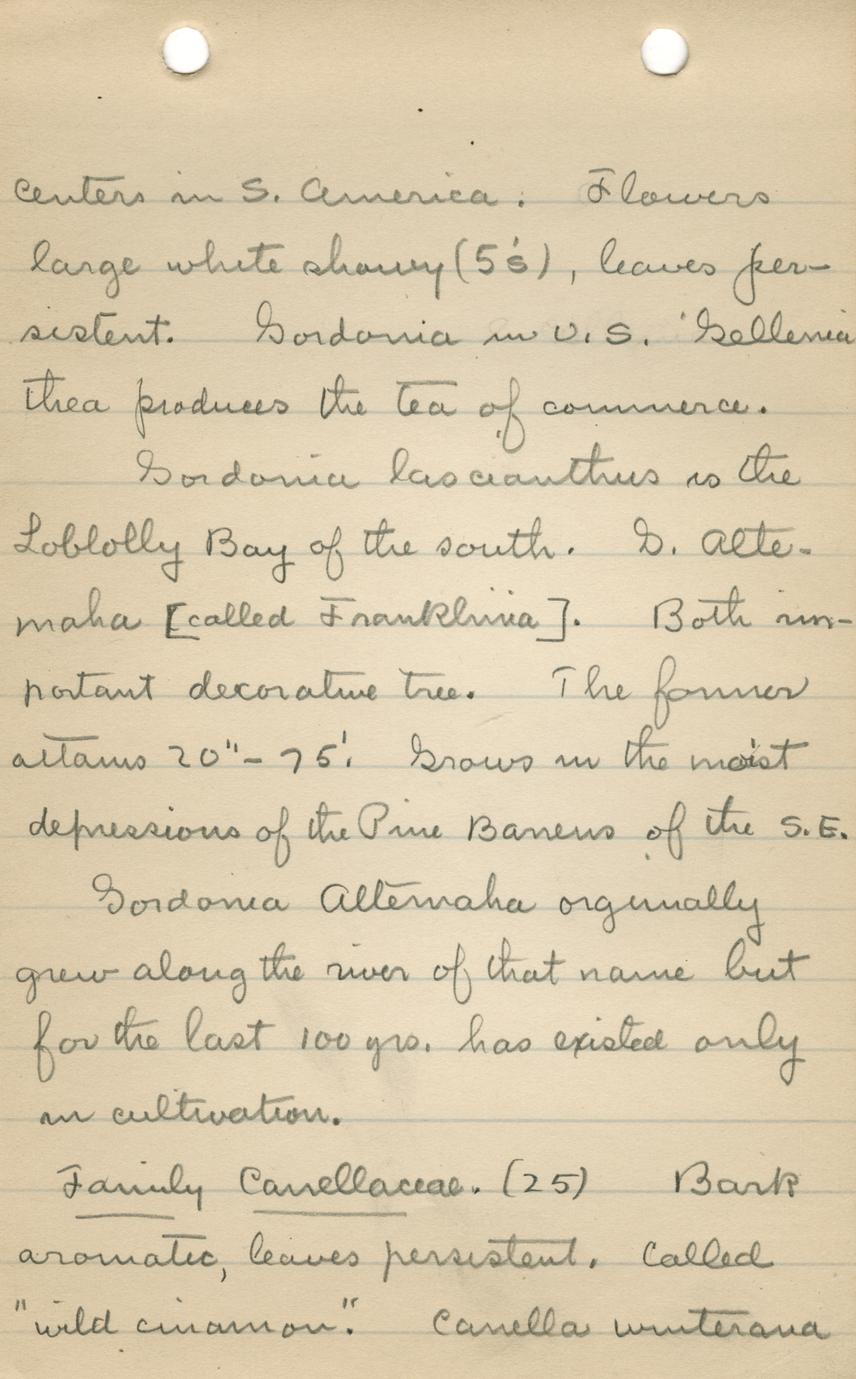 centers in S. America. Flowers
large white showy (5's), leaves per-
sistent. Gordonia in U.S. Gellenia
thea produces the tea of commerce.
Gordonia lascianthus is the
Loblolly Bay of the south. G. Alte-
maha [called Franklinia]. Both im-
portant decorative tree. The former
attains 20"- 75'. Grows in the moist
depressions of the Pine Barrens of the S.E.
Gordonia Altemaha orginally
grew along the river of that name but
for the last 100 yrs. has existed only
in cultivation.
Family Canellaceae. (25) Bark
aromatic, leaves persistent. Called
"wild cinamon". Canella winterana